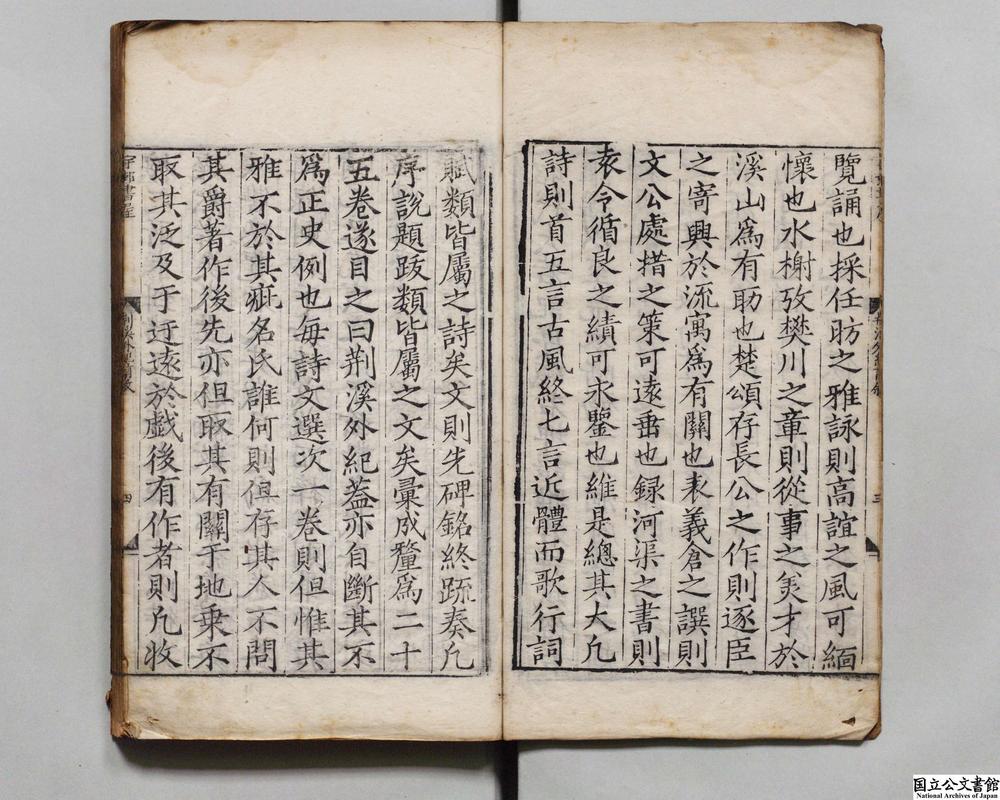 覽誦也採任昉之雅詠則高誼之風可緬
懷也水榭攷樊川之章則從事之羙才於
溪山爲有助也楚頌存長公之作則逐臣
之寄興於流寓爲有關也表義倉之譔則
文公處措之策可遠垂也録河渠之書則
袁令循良之績可永鑒也維是總其大凢
詩則首五言古風終七言近體而歌行詞
賦類皆屬之詩矣文則先碑銘終䟽奏凢
序說題跋類皆屬之文矣彙成釐爲二十
五卷遂目之曰荆溪外紀葢亦自斷其不
爲正史例也每詩文選次一卷則但惟其
雅不於其疵名氏誰何則但存其人不問
其爵著作後先亦但取其有關于地乗不
取其泛及于迂遠於戲後有作者則凢收
三
四
国立公文書館
National Archives of Japan